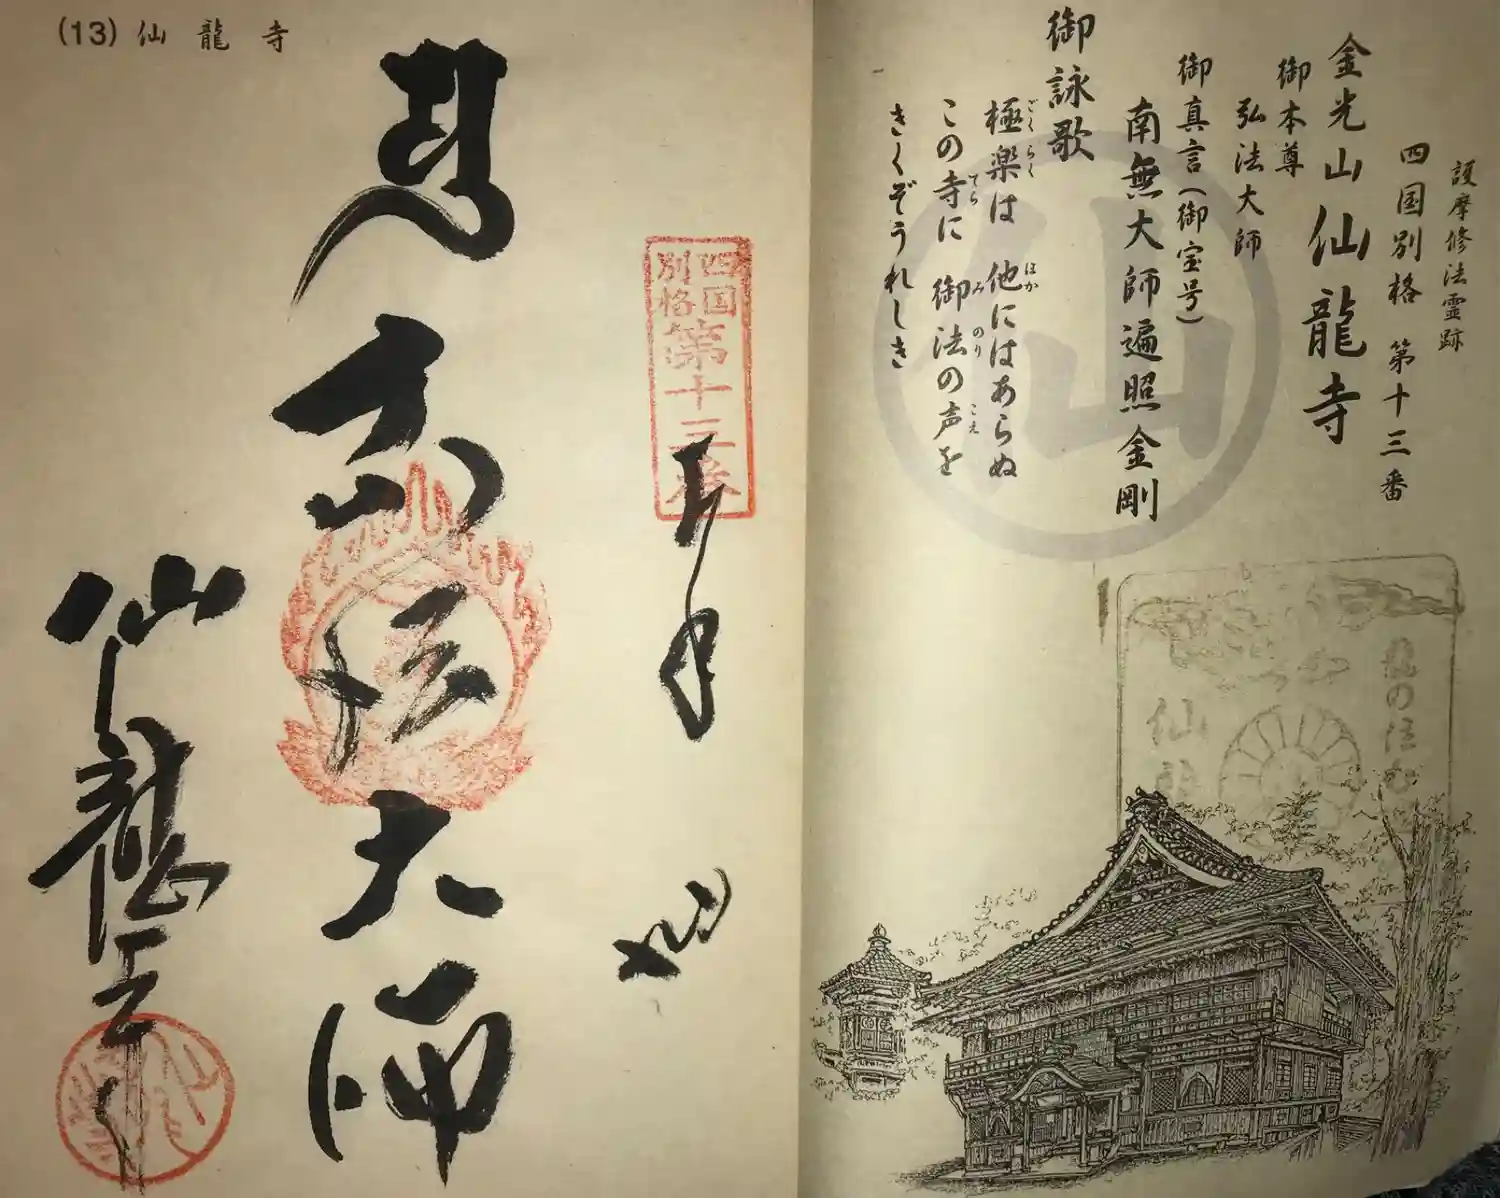 護摩修法霊跡
四国別格 第十三番
金光山 仙龍寺
御本尊
弘法大師
御真言(御宝号)
南無大師遍照金剛
御詠歌
極楽は 他にはあらぬ
ごくらく ほか
この寺に 御法の声を
てら みのり こえ
きくぞうれしき
仙
(13) 仙龍寺
四国
別格
第十三番
奉拝
弘法大師
仙龍寺